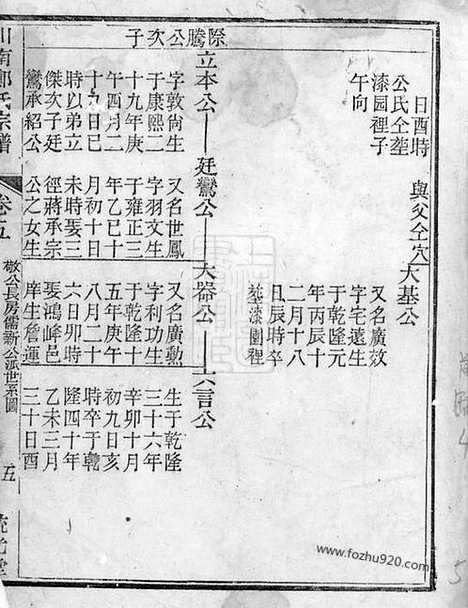 日酉時
公氏仝塋
漆园裡子
午向
與父仝穴
大基公
又名廣效
字宅遠生
于乾隆元
年丙辰十
二月十八
丑辰時卒
墓漆園裡
際騰公次子
立本公
字敦尚生
于康熙二
十九年庚
午四月二
十九日巳
時以弟立
傑次子廷
鸞承紹公
廷鸞公
又名世鳳
字羽文生
于雍正三
年乙巳十
月初十日
未時娶三
徑蔣承宗
公之女生
大器公
又名廣勲
字利功生
于乾隆十
五年庚午
八月二十
六日卯時
娶鴻峰邑
庠生詹運
六言公
生于乾隆
三十六年
辛卯十月
初九日亥
時卒于乾
隆四十年
乙未三月
三十日酉
南鄭氏宗譜
卷五
敬公長房儒新公派世系圖
五
www.fozhu920.com
5